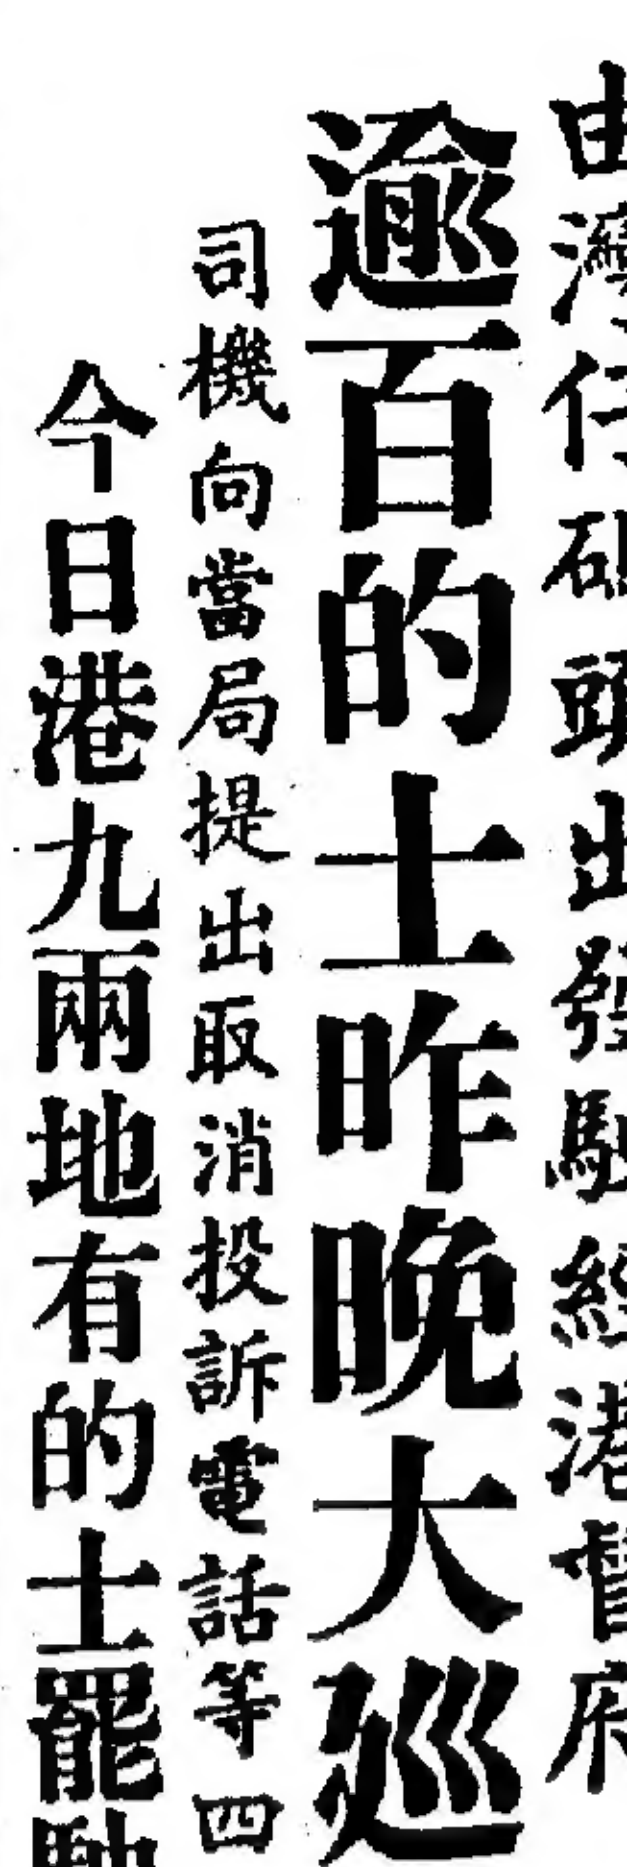 由灣仔碼頭出發駛經港督府
逾百的士昨晚大巡
司機向當局提出取消投訴電話等四
今日港九兩地有的士罷駛